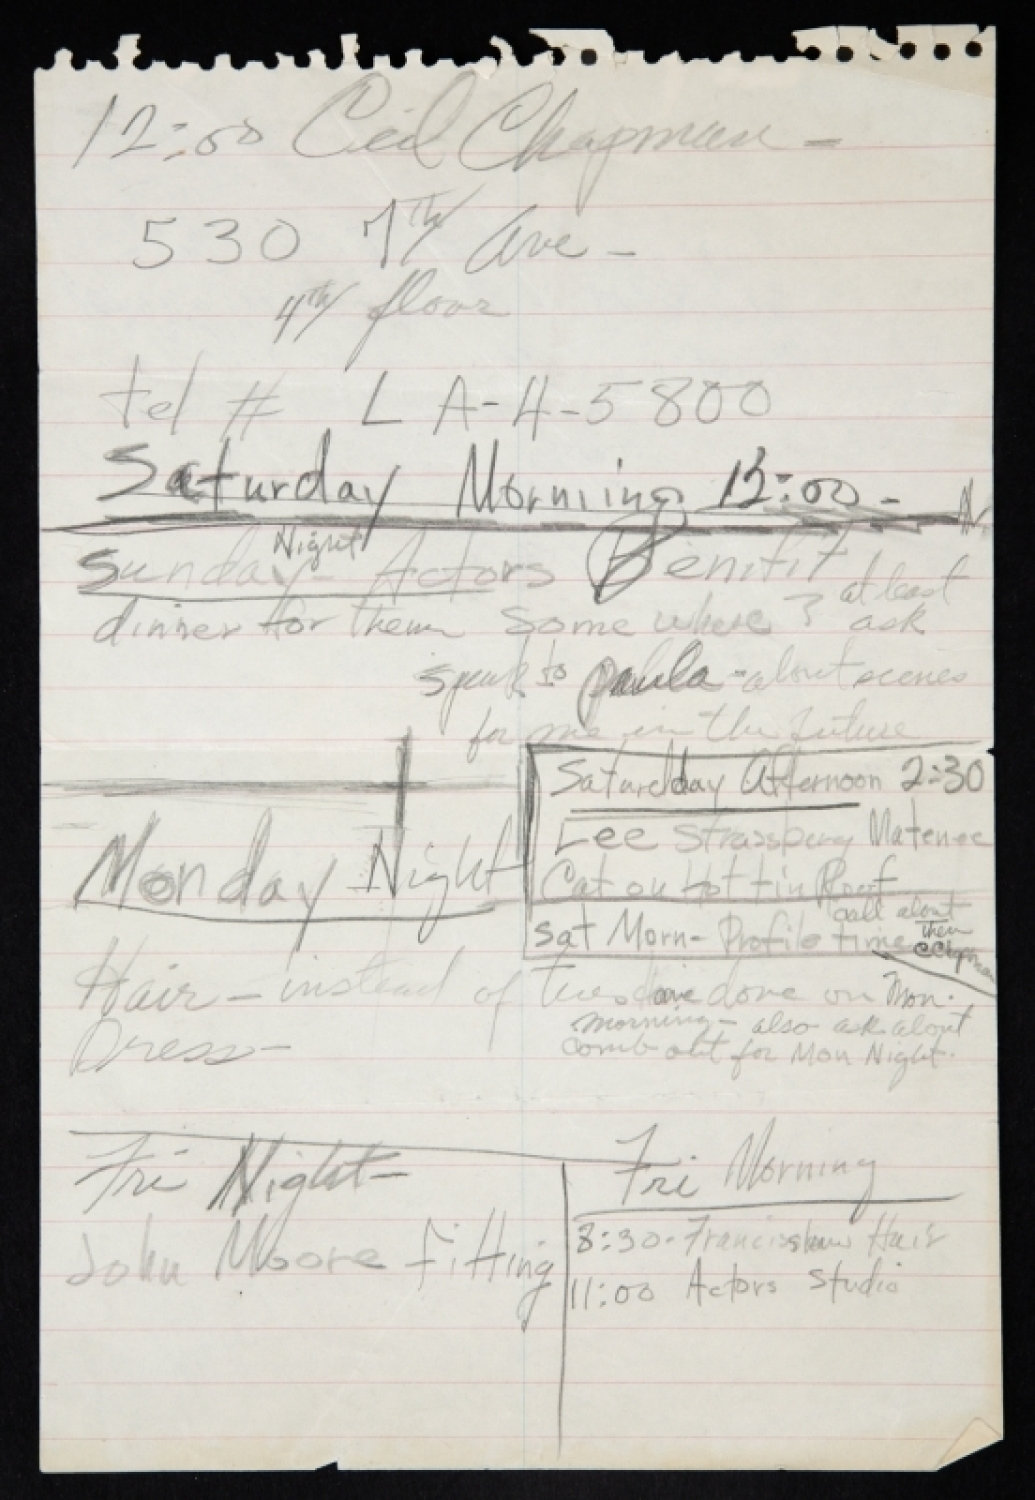 12:00 Ceil Chapman -
530 7th Ave -
4th floor
tel # LA-4-5800
Saturday Morning 12:00 -
Night
Sunday - Actors Benifit
dinner for them some where ? at least ask
speak to paula - about scenes
for me in the future
Saturday Afternoon 2:30
Lee Strassberg Matenee
Cat on Hot tin Roof
Sat Morn - Profile time call about them
Monday Night
Hair - instead of Tues have done on Mon.
morning - also ask about
comb out for Mon Night.
Dress -
Fri Night -
John Moore Fitting
Fri Morning
8:30 - Hair
11:00 Actors Studio